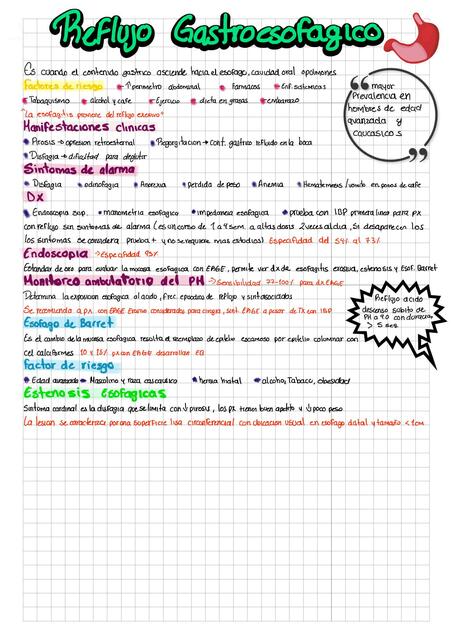 Reflujo Gastroesofagico
Es cuando el contenido gastrico asciende hacia el esofago, cavidad oral o pulmones
Factores de riesgo • ↑ Perimetro abdominal • Farmacos • Enf. sistemicas
• Tabaquismo • alcohol y cafe • Ejercicio • dieta en grasas • embarazo
"La esofagitis proviene del reflujo excesivo"
mayor
Prevalencia en
hombres de edad
avanzada y
caucasicos
Manifestaciones clinicas
• Pirosis → opresion retroesternal • Regorgitacion → cont. gastrico refluido en la boca
• Disfagia → dificultad para deglutir
Sintomas de alarma
• Disfagia • odinofagia • Anorexia • perdida de peso • Anemia • Hematemesis / vomito en posos de cafe
Dx
• Endoscopia sup. • manometria esofagica • impedancia esofagica • prueba con IBP primera linea para px
con reflujo sin sintomas de alarma (es un curso de 1 a 4 sem. a altas dosis 2 veces al dia, si desaparecen los
los sintomas se considera prueba + y no se requieren mas estudios) Especificidad del 54% al 73%
Endoscopia → Especificidad 95%
Estandar de oro para evaluar la mucosa esofagica con ERGE, permite ver dx de esofagitis erosiva, estenosis y Esof. Barret
Monitoreo ambulatorio del PH → Sensibilidad 77-100% para dx ERGE
Determina la exposicion esofagica al acido, frec. episodios de reflujo y sint asociados
Se recomienda a px con ERGE Erosivo considerados para cirugia, sint. ERGE a pesar de TX con IBP
Reflujo acido
descenso subito de
PH a 4.0 con duracion
> 5 seg
Esofago de Barret
Es el cambio de la mucosa esofagica resulta al reemplazo de epitelio escamoso por epitelio columnar con
cel caliciformes 10 y 15% px con ERGE desarrollan EB
Factor de riesgo
• Edad avanzada • Masculino y raza caucasico • hernia hiatal • alcohol, Tabaco, obesidad
Estenosis Esofagicas
Sintoma cardinal es la disfagia que se limita con ↓ pirosis, los px tienen buen apetito y ↓ poco peso
La lesion se caracteriza por una superficie lisa circunferencial con ubicacion usual en esofago distal y tamaño < 1cm